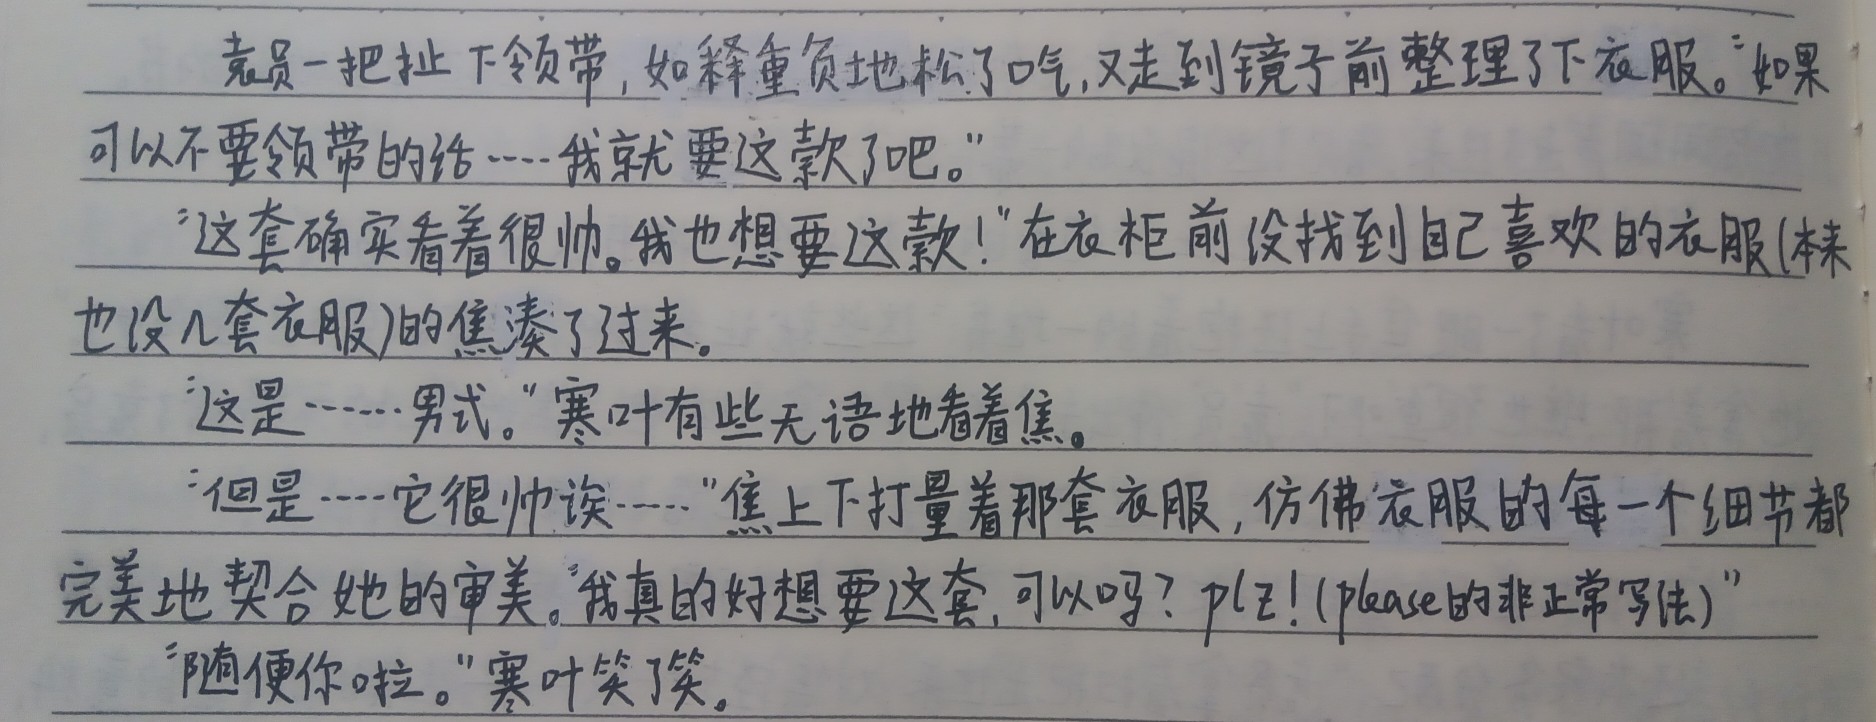 袁员一把扯下领带,如释重负地松了口气,又走到镜子前整理了下衣服。“如果
可以不要领带的话……我就要这款了吧。”
“这套确实看着很帅。我也想要这款！”在衣柜前没找到自己喜欢的衣服(本来
也没几套衣服)的焦凑了过来。
“这是……男式。”寒叶有些无语地看着焦。
“但是……它很帅诶……”焦上下打量着那套衣服,仿佛衣服的每一个细节都
完美地契合她的审美。“我真的好想要这套,可以吗？plz！(please的非正常写法)”
“随便你啦。”寒叶笑了笑。